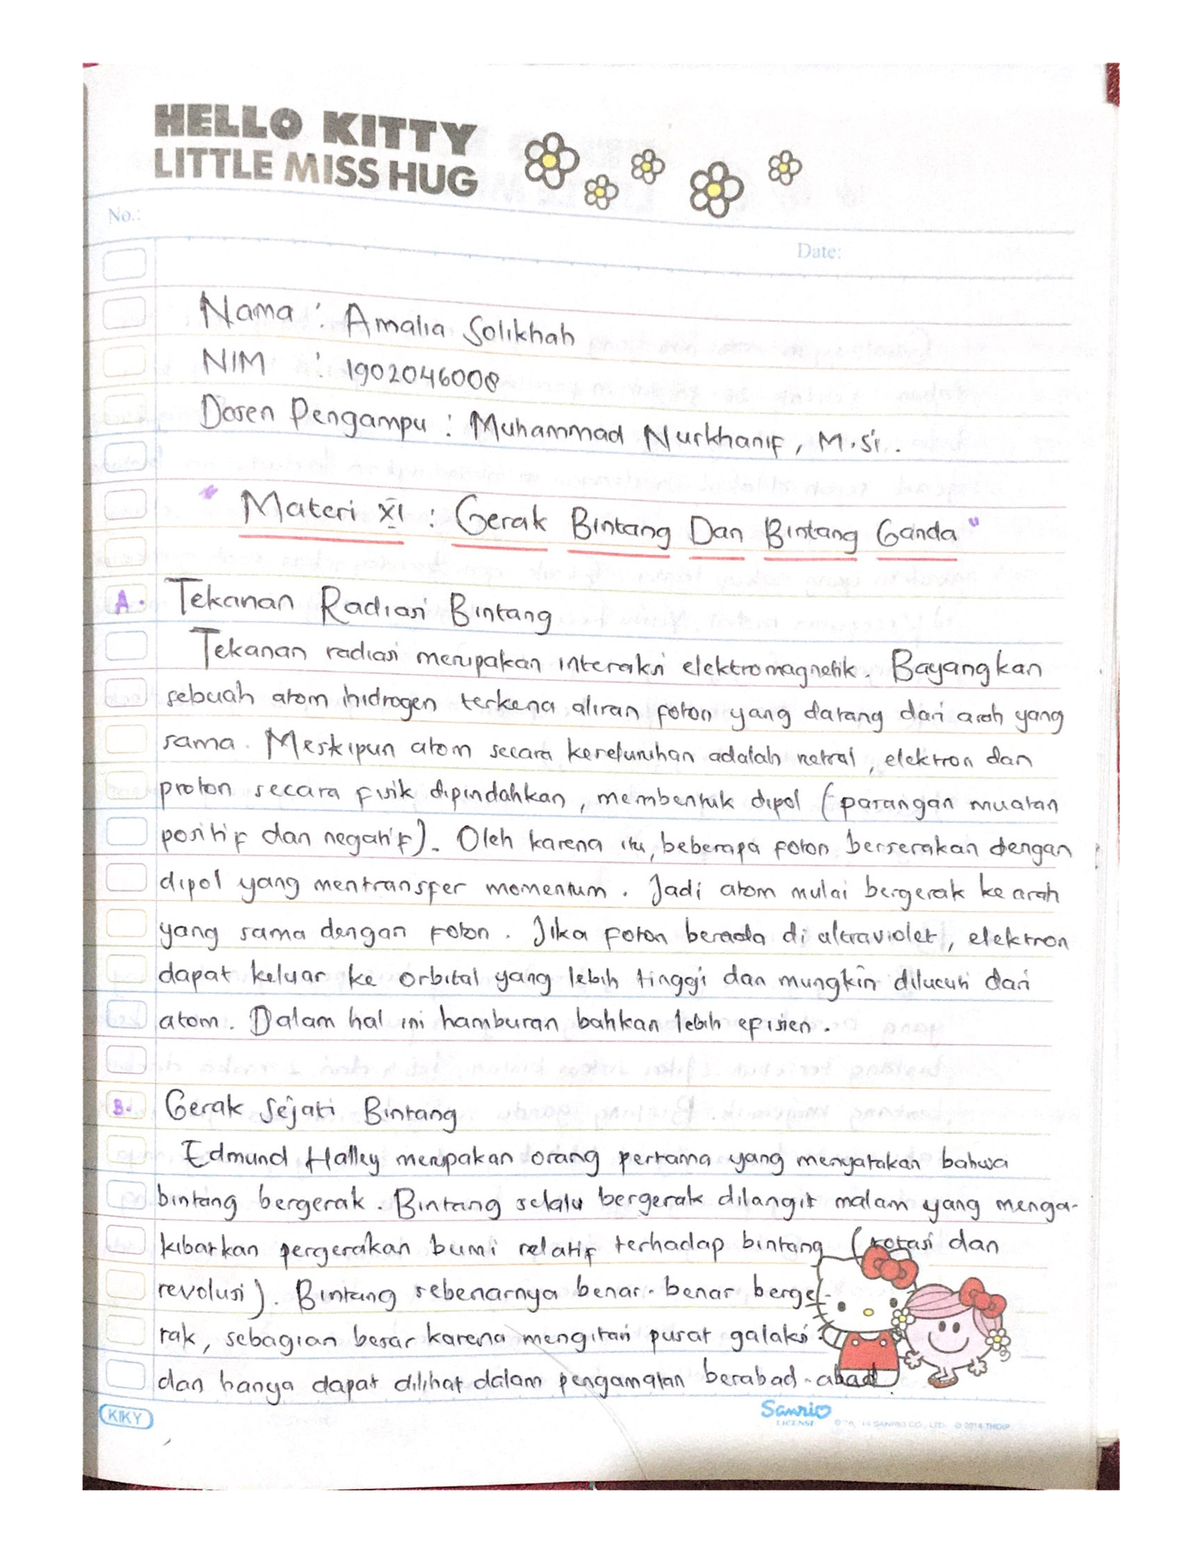 HELLO KITTY
LITTLE MISS HUG
No.:
Date:
Nama : Amalia Solikhah
NIM : 1902046008
Dosen Pengampu : Muhammad Nurkhanif, M.Si.
" Materi XI : Gerak Bintang Dan Bintang Ganda "
A. Tekanan Radiasi Bintang
Tekanan radiasi merupakan interaksi elektromagnetik. Bayangkan
sebuah atom hidrogen terkena aliran foton yang datang dari arah yang
sama. Meskipun atom secara keseluruhan adalah netral, elektron dan
proton secara fisik dipindahkan, membentuk dipol (pasangan muatan
positif dan negatif). Oleh karena itu, beberapa foton berserakan dengan
dipol yang mentransfer momentum. Jadi atom mulai bergerak ke arah
yang sama dengan foton. Jika foton berada di ultraviolet, elektron
dapat keluar ke orbital yang lebih tinggi dan mungkin dilucuti dari
atom. Dalam hal ini hamburan bahkan lebih efisien.
B. Gerak Sejati Bintang
Edmund Halley merupakan orang pertama yang menyatakan bahwa
bintang bergerak. Bintang selalu bergerak dilangit malam yang menga-
kibatkan pergerakan bumi relatif terhadap bintang (rotasi dan
revolusi). Bintang sebenarnya benar-benar berge-
rak, sebagian besar karena mengitari pusat galaksi
dan hanya dapat dilihat dalam pengamatan berabad-abad.
KIKY
Sanrio
LICENSE